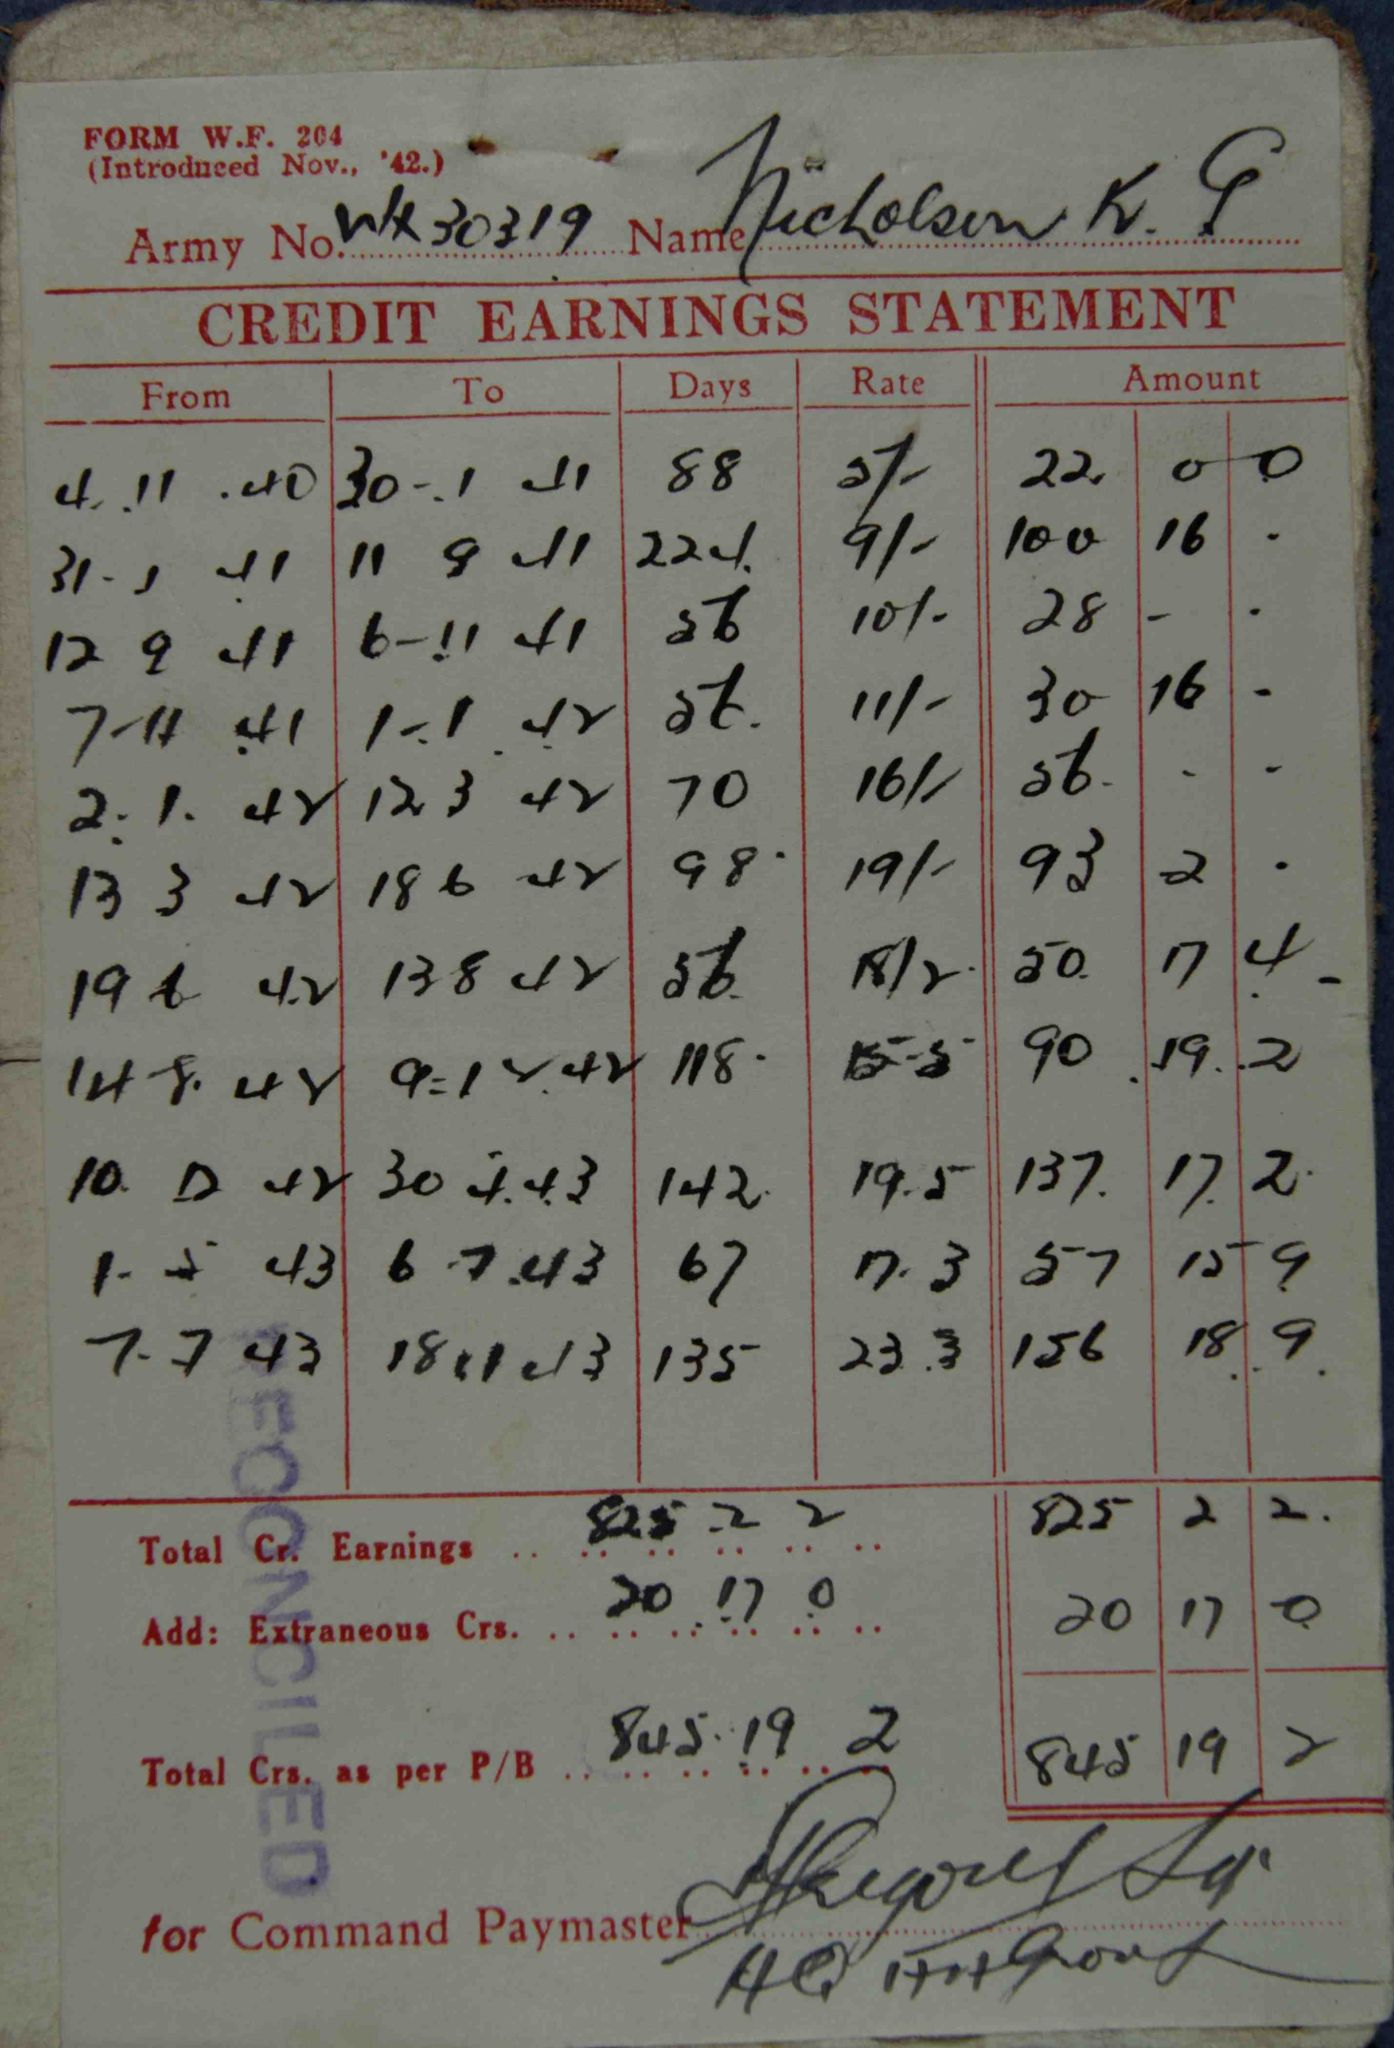 FORM W.F. 204
(Introduced Nov., '42.)
Army No. WX30319 Name Nicholson K. G
CREDIT EARNINGS STATEMENT
From To Days Rate Amount
4. 11 . 40 30-.1 41 88 5/- 22. 0 0
31-1 41 11 9 41 224. 9/- 100 16 -
12 9 41 6-.11 41 56 10/- 28 - -
7-11 41 1-.1 . 42 56. 11/- 30 16 -
2. 1. 42 12 3 42 70 16/- 56. - -
13 3 42 18 6 42 98. 19/- 93 2 -
19 6 42 13 8 42 56. 18/2. 50. 17 4 -
14 8. 42 9=12.42 118. 15-5 90 .19. .2
10. 12 42 30 4.43 142. 19.5 137. 17. 2.
1. 5 43 6 7.43 67 17.3 57 15 9
7-7 43 18 11 43 135 23.3 156 18. 9.
Total Cr. Earnings 825 .2 2 825 2 2.
Add: Extraneous Crs. 20 17 0 20 17 0
Total Crs. as per P/B 845. 19 2 845 19 2
for Command Paymaster
HQ
RECONCILED